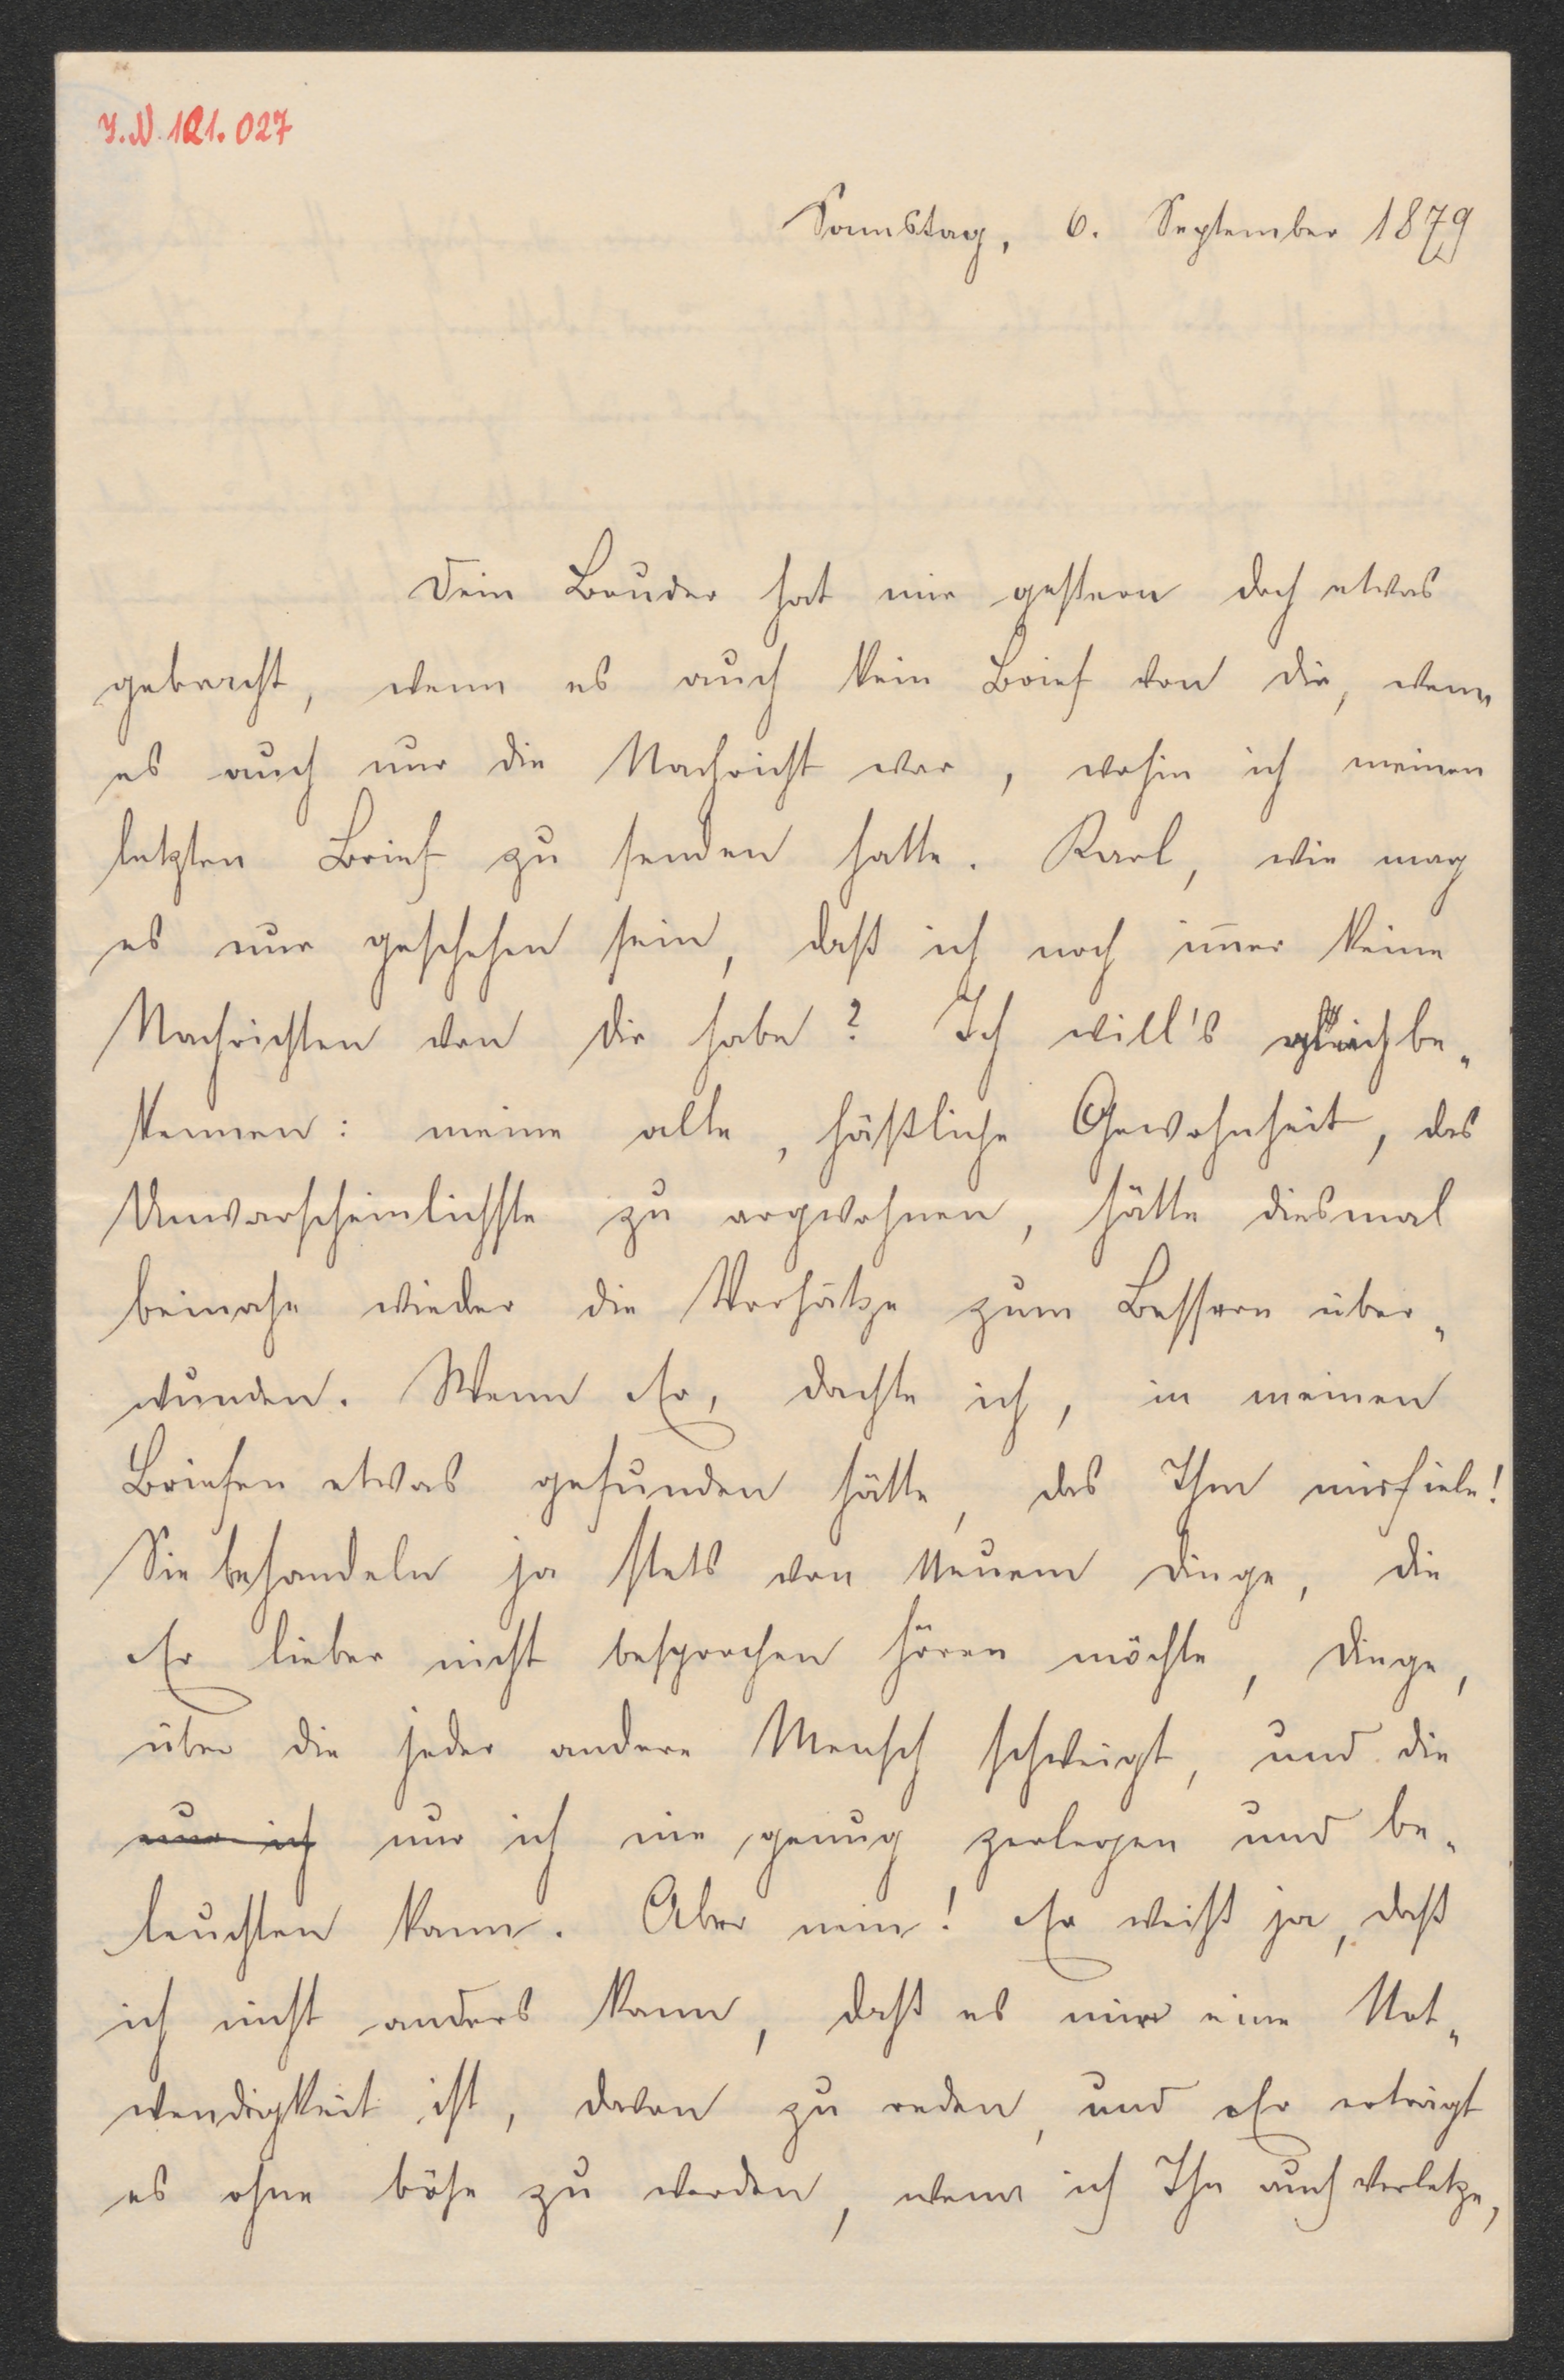 I.N. 121.027
Samstag, 6. September 1879
Dein Bruder hat mir gestern doch etwas
gebracht, wenn es auch kein Brief von dir, wenn
es auch nur die Nachricht war, wohin ich meinen
letzten Brief zu senden hatte. Karl, wie mag
es nur geschehen sein, daß ich noch im̄er keine
Nachrichten von dir habe? Ich will's gleich be„
kennen: meine alte, häßliche Gewohnheit, das
Unwarscheinlichste zu argwohnen, hätte diesmal
beinahe wieder die Vorsätze zum Bessern über„
wunden. Wenn Er, dachte ich, in meinen
Briefen etwas gefunden hätte, das Ihm misfiele!
Sie behandeln ja stets von Neuem Dinge, die
Er lieber nicht besprochen hören möchte, Dinge,
über die jeder andere Mensch schweigt, und die
nur ich nur ich nie genug zerlegen und be„
leuchten kann. Aber nein! Er weißt ja, daß
ich nicht anders kann, daß es mir eine Not„
wendigkeit ist, davon zu reden, und Er erträgt
es ohne böse zu werden, wenn ich Ihn auch verletze,